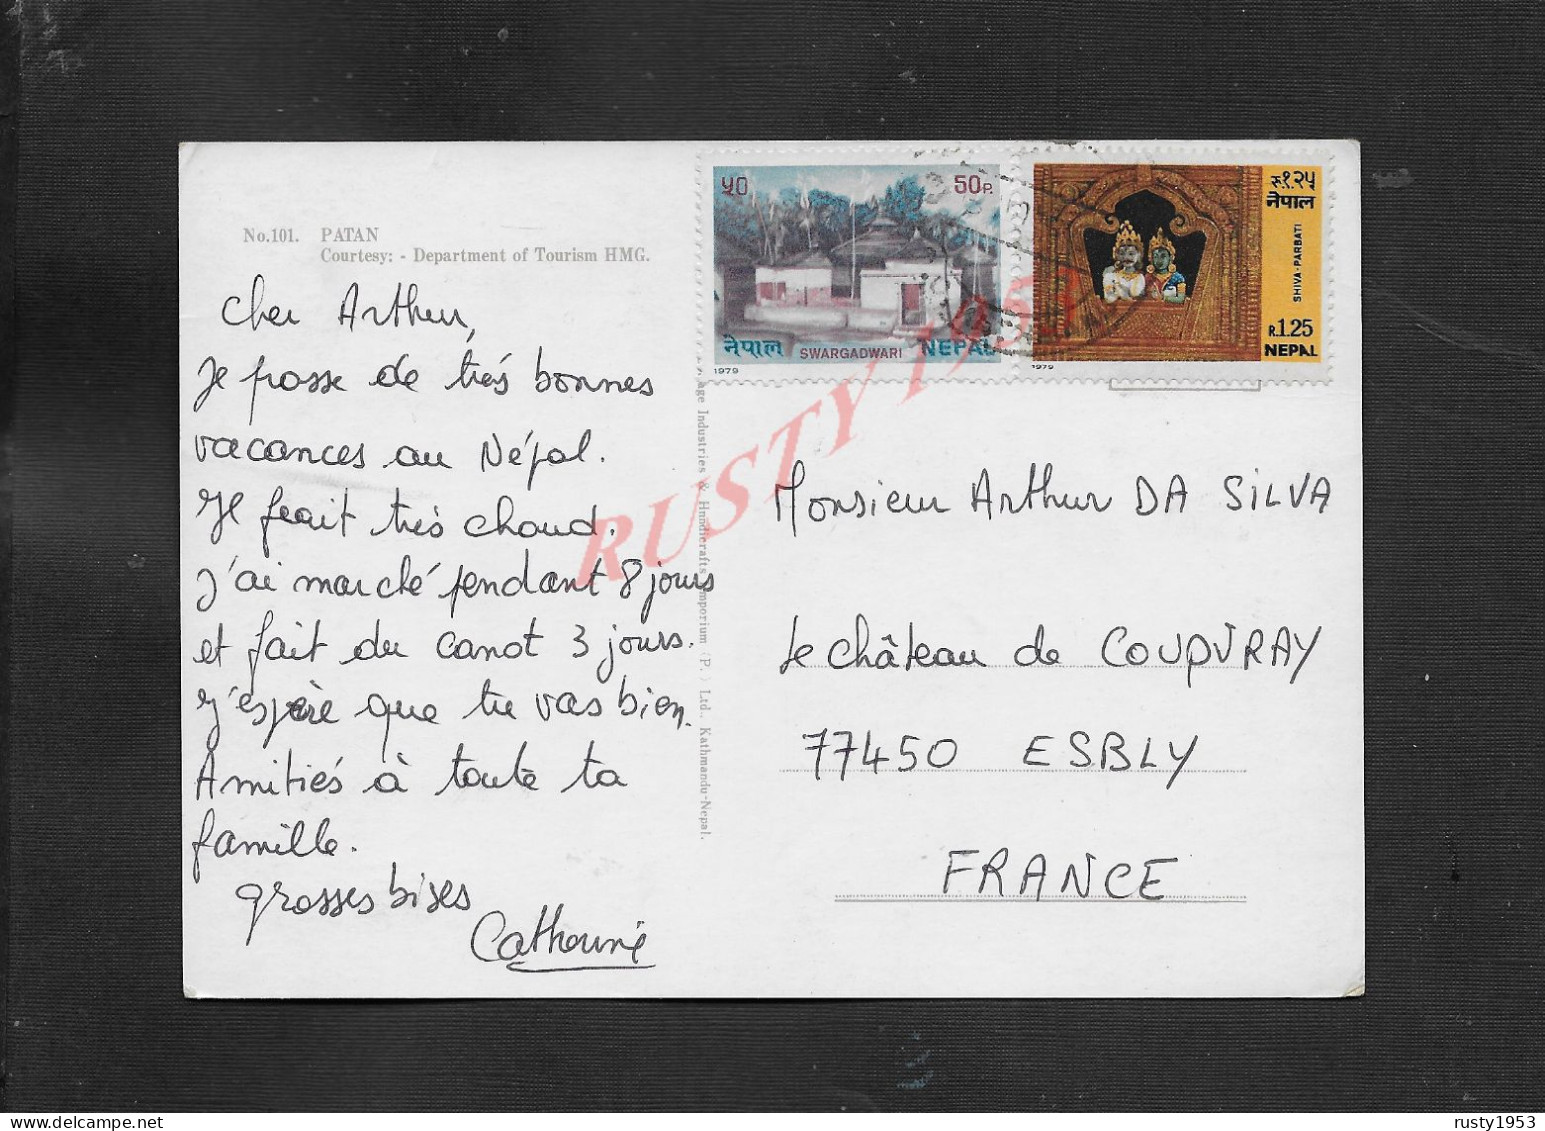 No.101. PATAN
Courtesy: - Department of Tourism HMG.
Cher Arthur,
Je passe de très bonnes
vacances au Népal.
Il feait très chaud.
J'ai marché pendant 8 jours
et fait du canot 3 jours.
J'espère que tu vas bien.
Amitiés à toute ta
famille.
grosses bises
Catherine
५० 50P.
नेपाल SWARGADWARI NEPAL
1979
रु.१.२५
नेपाल
SHIVA-PARBATI
R.1.25
NEPAL
1979
age Industries & Handicrafts Emporium (P.) Ltd., Kathmandu-Nepal.
Monsieur Arthur DA SILVA
Le château de COUPVRAY
77450 ESBLY
FRANCE
RUSTY 1953
rusty1953